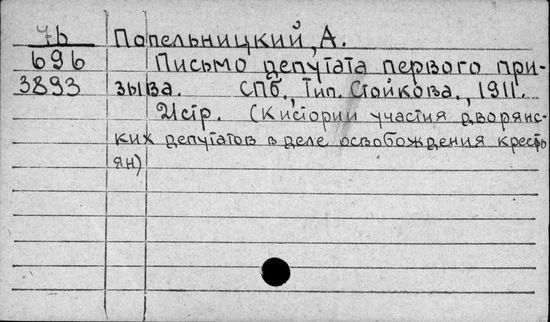 7b Попельницкий, А.
696 Письмо депутата первого при-
3893 зыва. СПб., Тип. Стойкова., 1911.
21стр. (К истории участия дворянс-
ких депутатов в деле освобождения кресть
ян)